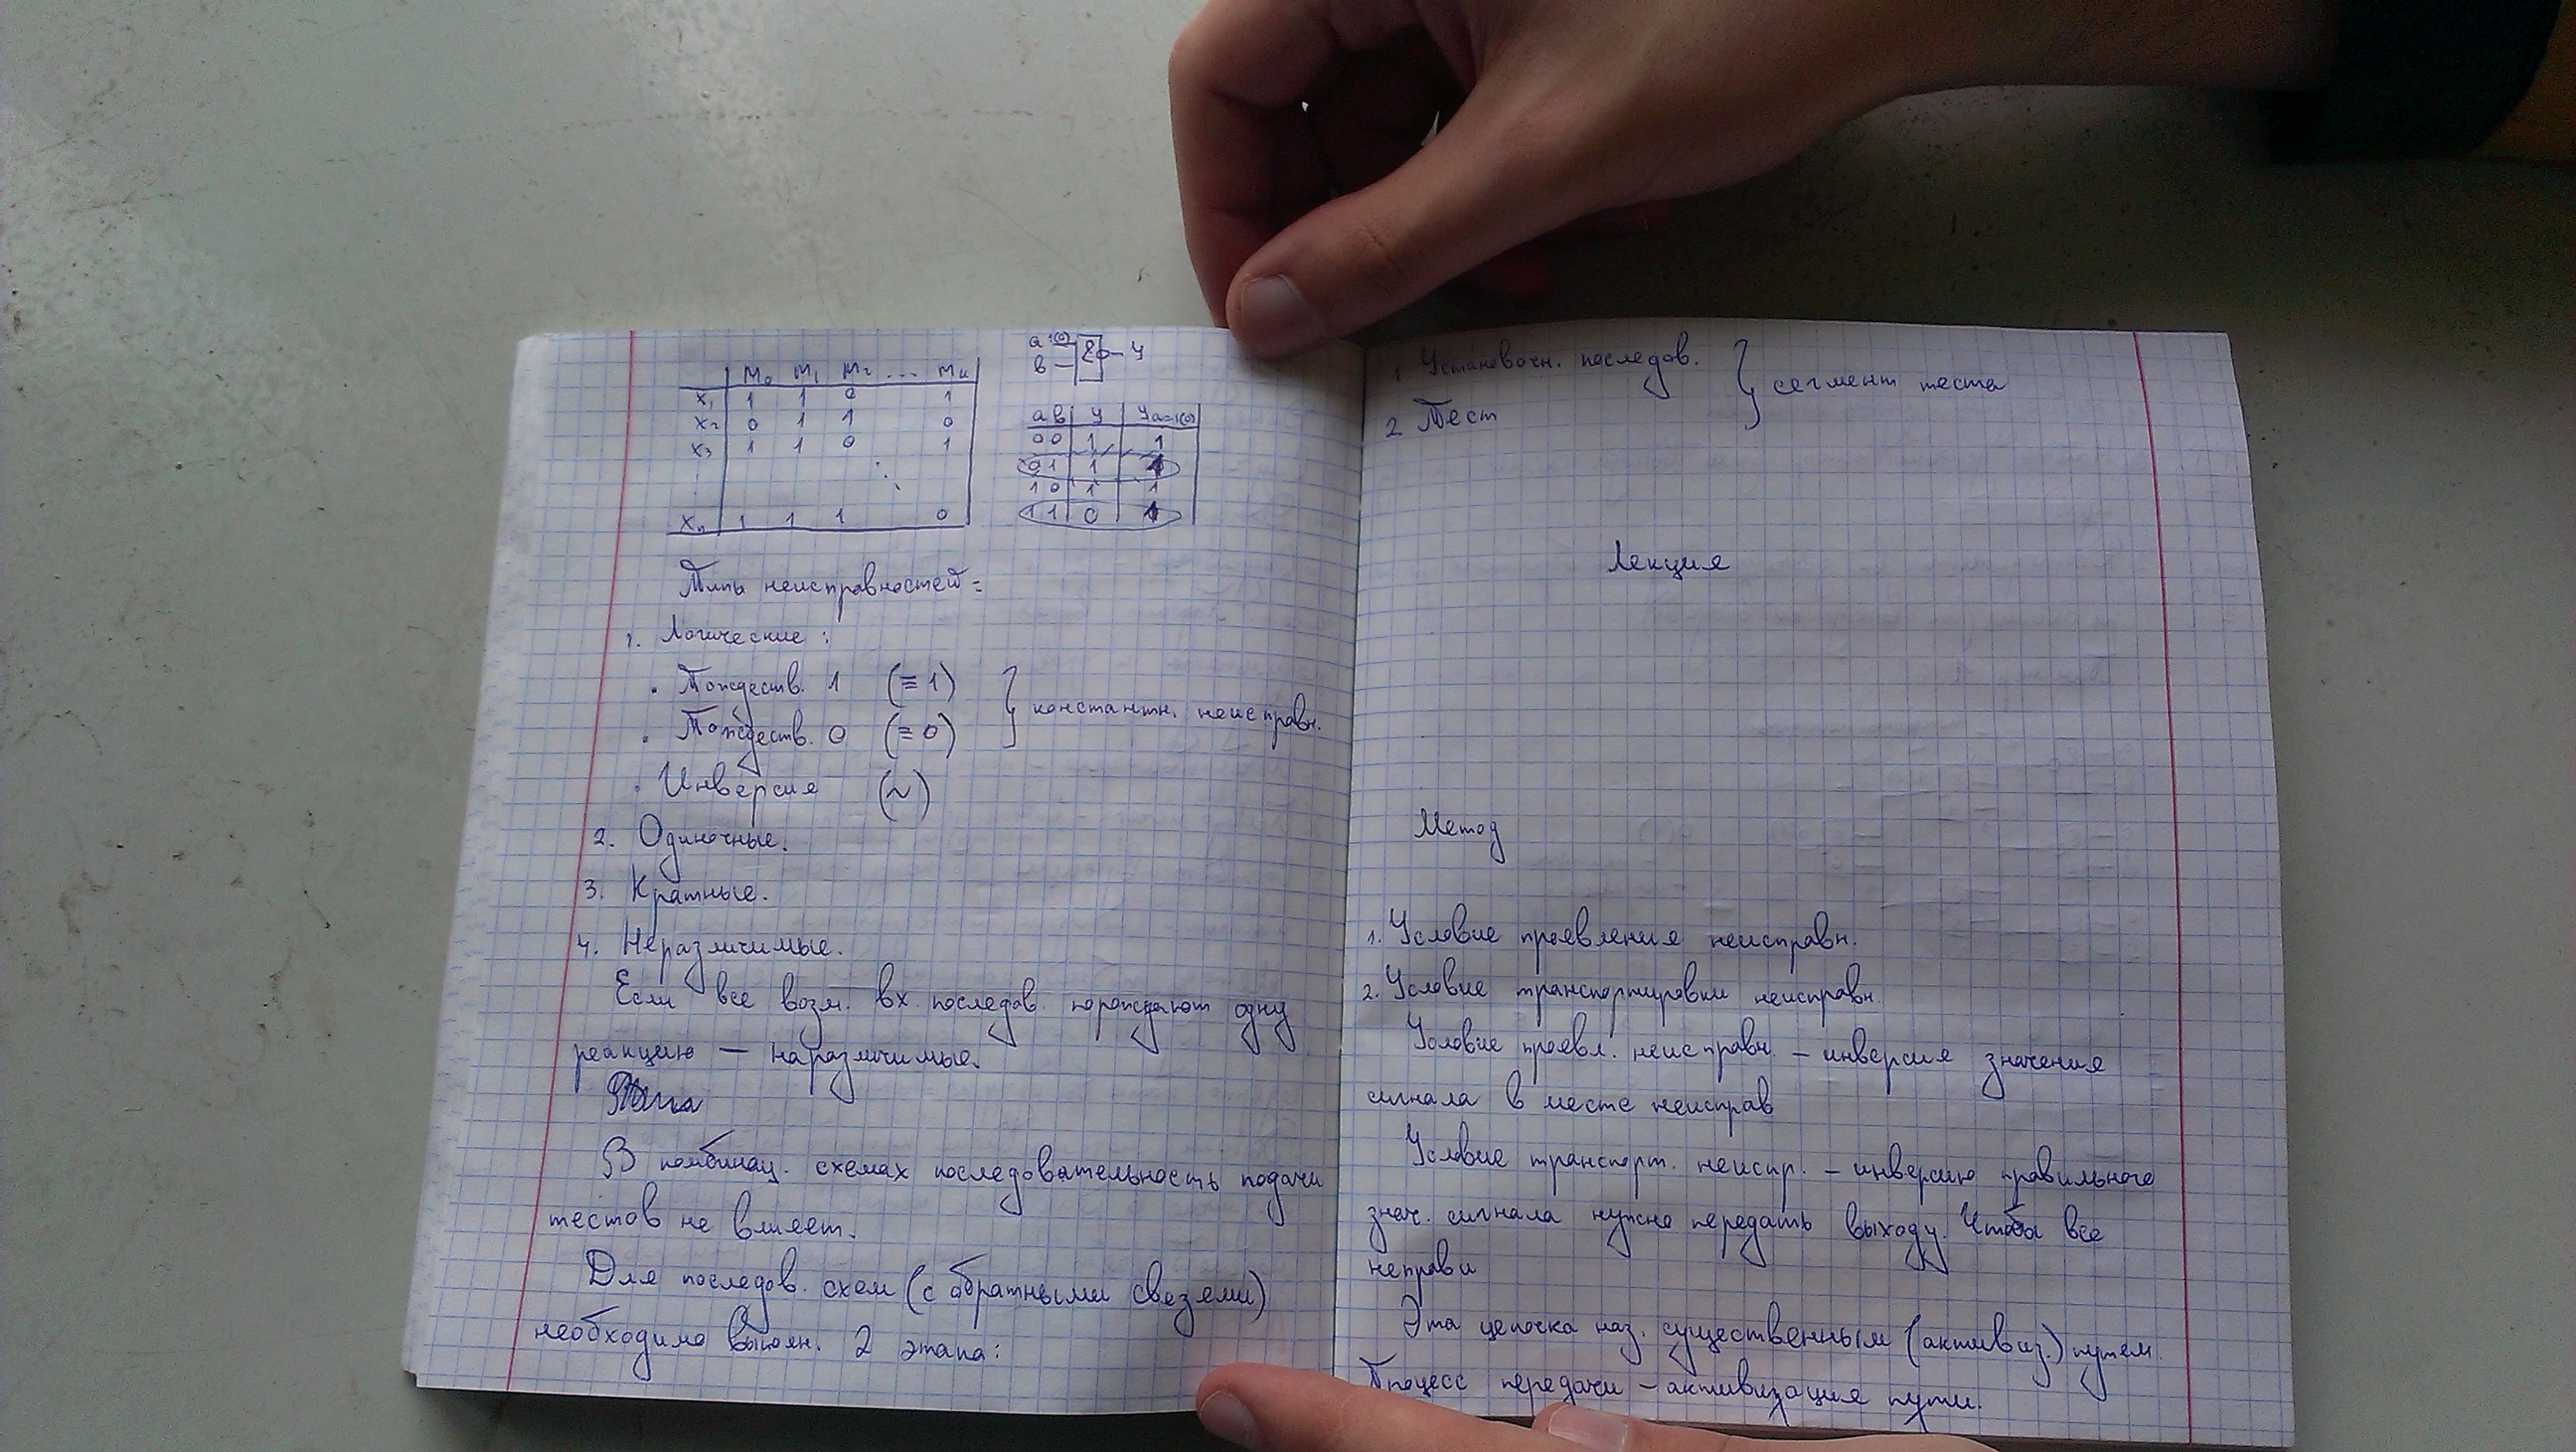 M₀ M₁ M₂ ... Mₖ
x₁ 1 1 0 1
x₂ 0 1 1 0
x₃ 1 1 0 1
xₙ 1 1 1 0
a
в & y
a в y
0 0 1 1
0 1 1
1 0 1 1
1 1 0
Типы неисправностей:
1. Логические:
• Тождеств. 1 (≡ 1)
• Тождеств. 0 (≡ 0)
константн. неисправн.
• Инверсия (~)
2. Одиночные.
3. Кратные.
4. Неразличимые.
Если все возм. вх. последов. порождают одну
реакцию — наразличимые.
В комбинац. схемах последовательность подачи
тестов не влияет.
Для последов. схем (с обратными связями)
необходимо выполн. 2 этапа:
1. Установочн. последов.
2 Тест
сегмент теста
Лекция
Метод
1. Условие проявления неисправн.
2. Условие транспортировки неисправн.
Условие проявл. неисправн. – инверсия значения
сигнала в месте неисправ
Условие транспорт. неиспр. – инверсию правильного
знач. сигнала нужно передать выходу. Чтобы все
неправи
Эта цепочка наз. существенным (активиз.) путем.
Процесс передачи – активизация пути.